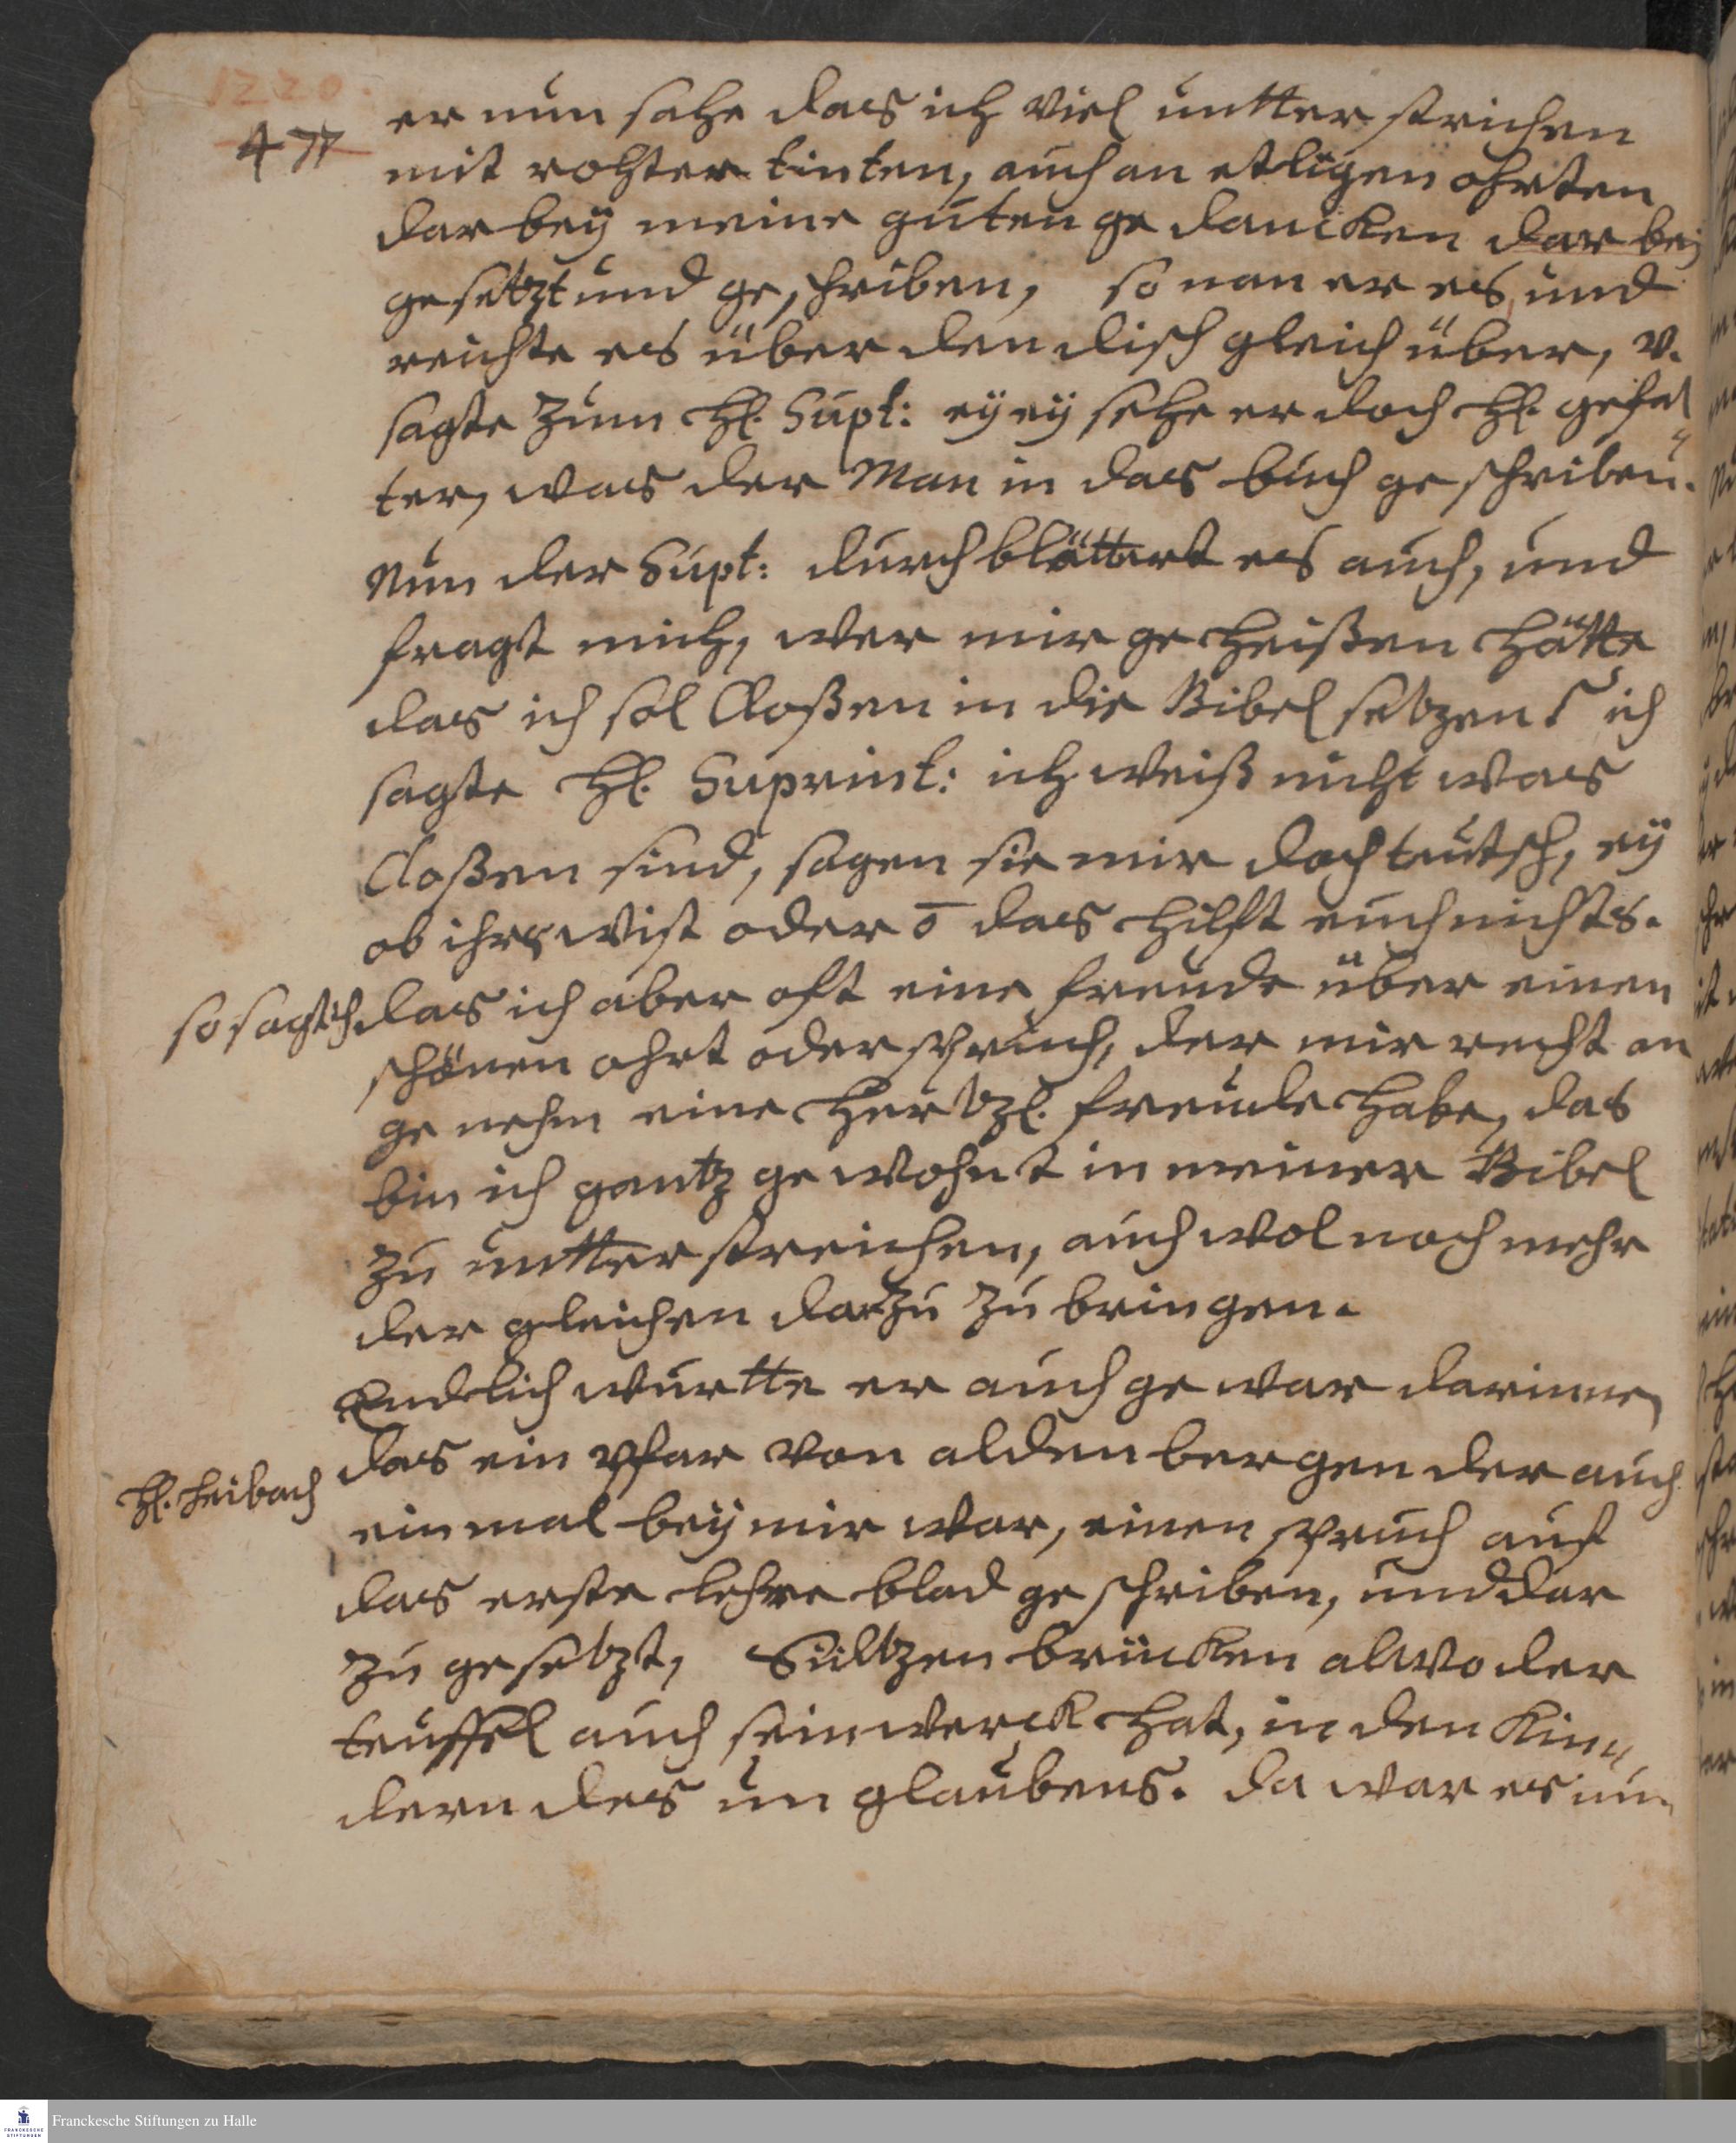 1220.
477
er nun sahe das ich viel untterstrichen
mit rohter tinten, auch an etligen ohrten
dar beÿ meine guten ge dancken dar beÿ
gesetzt und ge schriben, so nan er es und
reichte es über den disch gleich über, v.
sagte zum Hl. Supt: eÿ eÿ sehe er doch Hl. gefat
ter, was der Man in das buch ge schriben.
Nun der Supt: durch blättert es auch, und
fragt mich, wer mir ge heißen hätte
das ich sol Cloßen in die Bibel setzen? ich
sagte Hl. Suprint: ich weiß nicht was
Cloßen sind, sagen sie mir doch teutsch, eÿ
ob ihrs wist oder o̅ das hilft euch nichts.
so sagt ich das ich aber oft eine freude über einen
schönen ohrt oder spruch, der mir recht an
ge nehm eine hertzl. freude habe, das
bin ich gantz ge wohnt in meiner Bibel
zu untter streichen, auch wol noch mehr
der gleichen darzu zu bringen.
Endlich wurtte er auch ge war darinne,
das ein pfar von alden bergen der auch
Hl. heibach
ein mal beÿ mir war, einen spruch auf
das erste lehre blad ge schriben, und dar
zu ge setzt, Sültzen brücken alwo der
teuffel auch sein werck hat, in den Kin
dern des un glaubens. da war es nun
Franckesche Stiftungen zu Halle